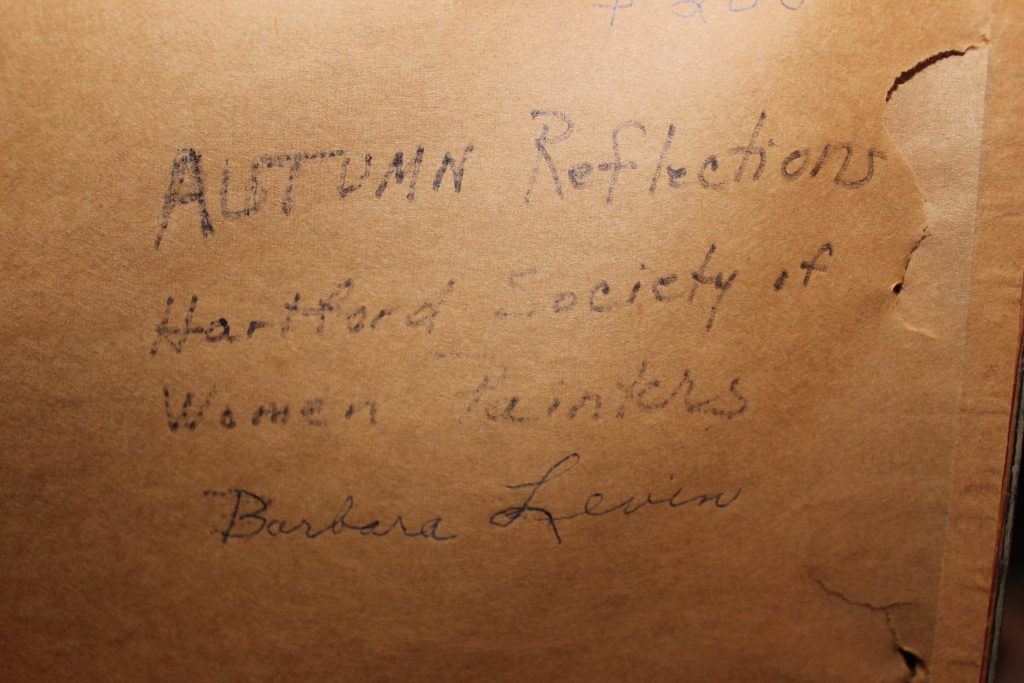 AUTUMN Reflections
Hartford Society of
Women Painters
Barbara Levin